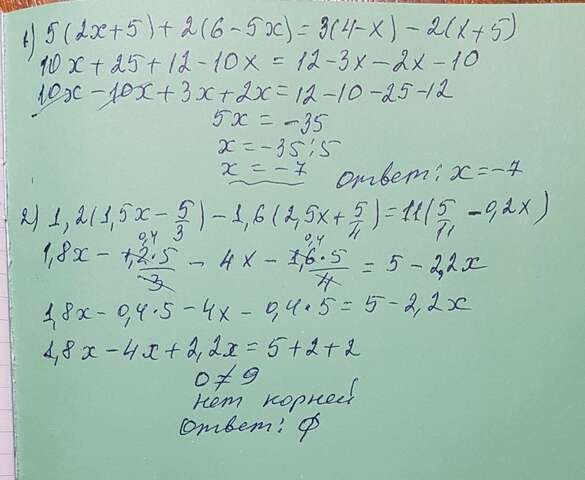 1) 5(2x+5)+2(6-5x)=3(4-x)-2(x+5)
10x+25+12-10x=12-3x-2x-10
10x-10x+3x+2x=12-10-25-12
5x=-35
x=-35:5
x=-7 Ответ: x=-7
2) 1,2(1,5x-5/3)-1,6(2,5x+5/4)=11(5/11-0,2x)
1,8x-0,4 1,2·5/3-4x-0,4 1,6·5/4=5-2,2x
1,8x-0,4·5-4x-0,4·5=5-2,2x
1,8x-4x+2,2x=5+2+2
0≠9
нет корней
Ответ: ∅